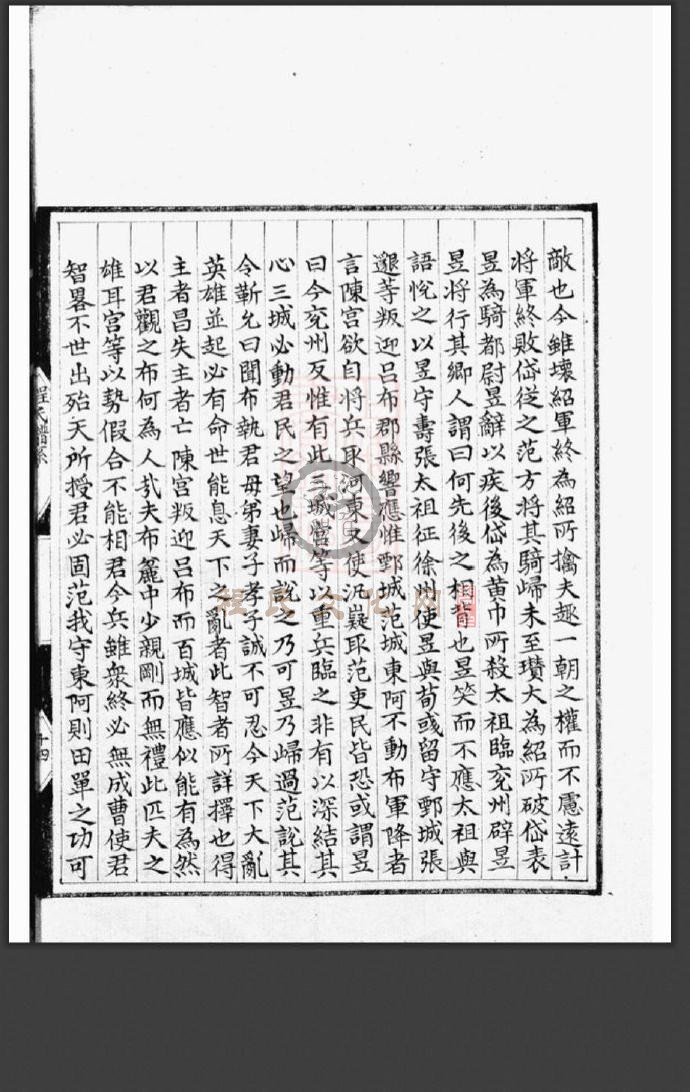 敵也今雖壞紹軍終為紹所擒夫趣一朝之權而不慮遠計
將軍終敗岱從之范方將其騎歸未至瓚大為紹所破岱表
昱為騎都尉昱辭以疾後岱為黄巾所殺太祖臨兖州辟昱
昱將行其鄉人謂曰何先後之相背也昱笑而不應太祖與
語悅之以昱守壽張太祖征徐州使昱與荀彧留守鄄城張
邈等叛迎吕布郡縣響應惟鄄城范城東阿不動布軍降者
言陳宫欲自將兵取阿東又使汎嶷取范吏民皆恐或謂昱
曰今兖州反惟有此三城當等以重兵臨之非有以深結其
心三城必動君民之望也歸而說之乃可昱乃歸過范說其
令靳允曰聞布執君母弟妻子孝子誠不可忍今天下大亂
英雄並起必有命世能息天下之亂者此智者所詳擇也得
主者昌失主者亡陳宫叛迎吕布而百城皆應似能有為然
以君觀之布何為人㢤夫布麄中少親剛而無禮此匹夫之
雄耳宫等以勢假合不能相君今兵雖衆終必無成曹使君
智畧不世出殆天所授君必固范我守東阿則田單之功可
程氏譜系
十四
程氏文化网